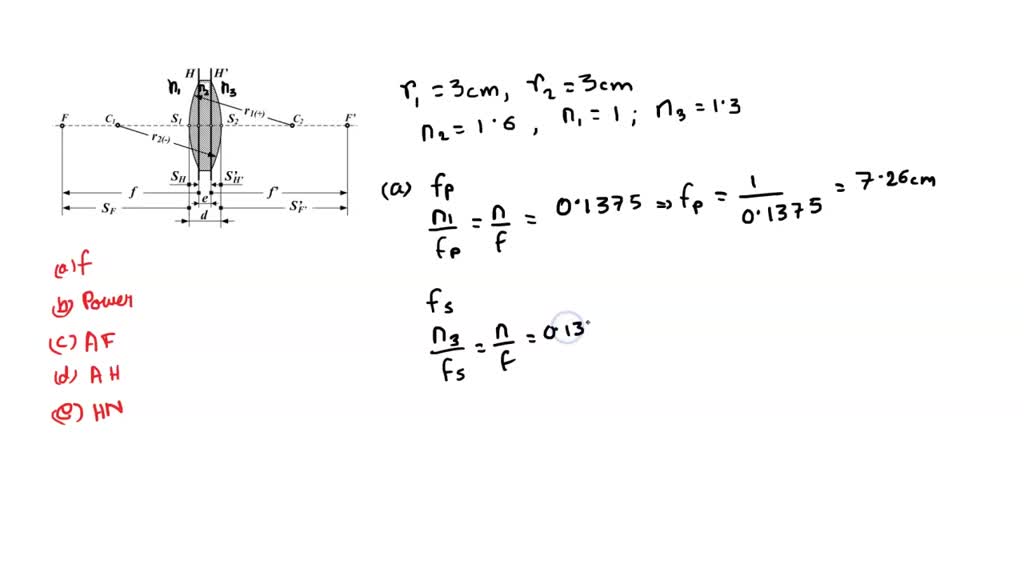 H H'
n₁ n₂ n₃
r₁₍₊₎
F C₁ S₁ S₂ C₂ F'
r₂₍₋₎
S_H S'_H'
f e f'
S_F d S'_F'
(a) f
(b) Power
(c) AF
(d) AH
(e) HN
r₁ = 3cm, r₂ = 3cm
n₂ = 1.6 , n₁ = 1 ; n₃ = 1.3
(a) fp
n₁/fp = n/f = 0.1375 => fp = 1/0.1375 = 7.26cm
fs
n₃/fs = n/f = 0.13